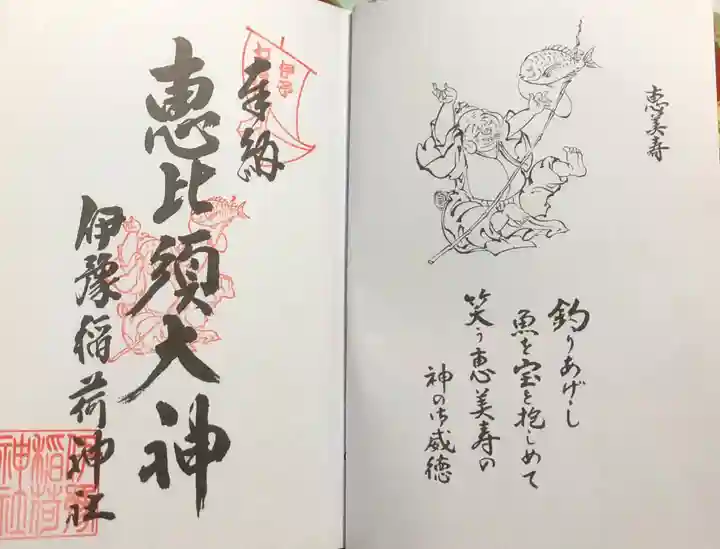 恵美寿
釣りあげし
魚を宝と抱しめて
笑う恵美寿の
神の御威徳
奉納
恵比須大神
伊豫稲荷神社
伊豫
稲荷
神社